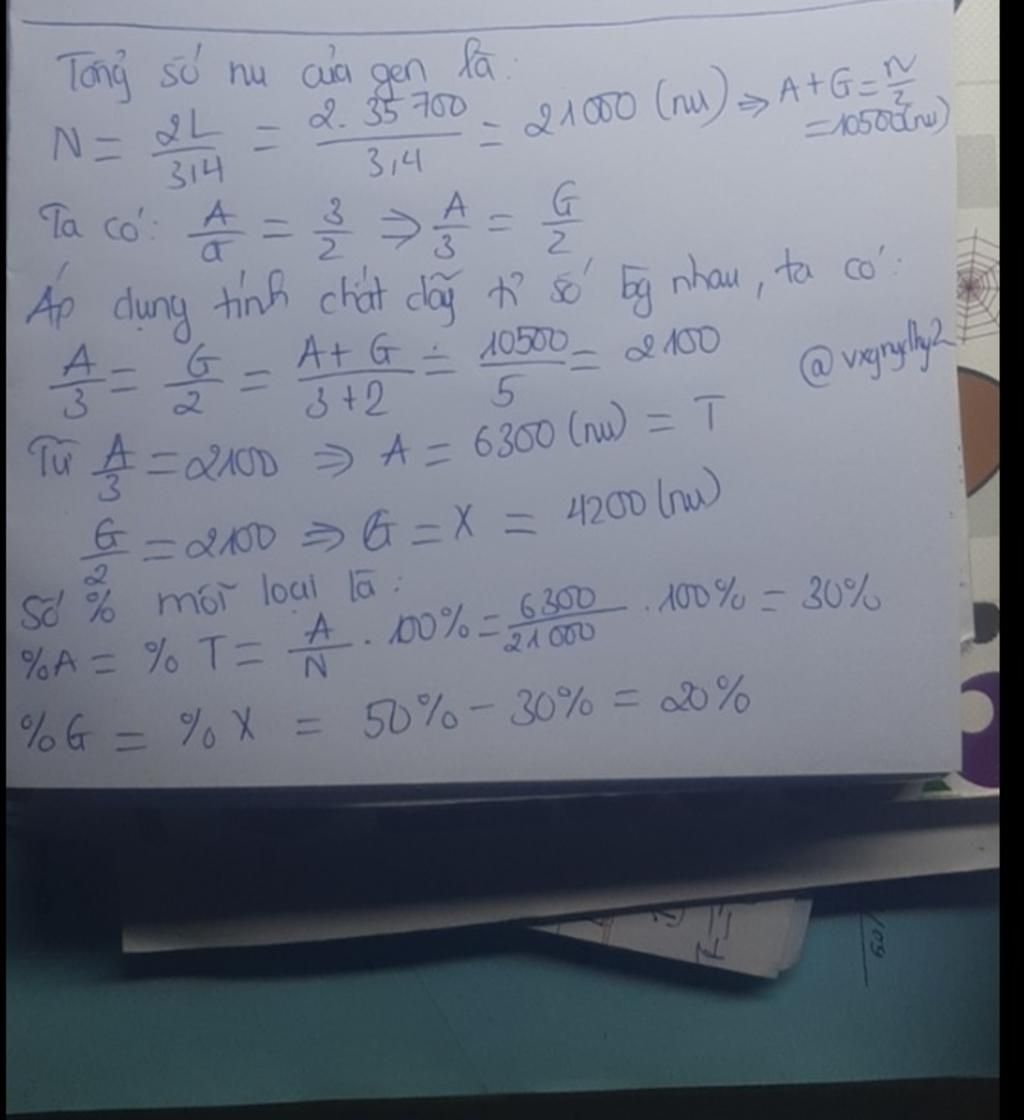 Tổng số nu của gen là:
N = 2L/3,4 = 2.35700/3,4 = 21000 (nu) => A + G = N/2
= 10500(nu)
Ta có: A/G = 3/2 => A/3 = G/2
Áp dụng tính chất dãy tỉ số bg nhau, ta có:
A/3 = G/2 = A+G/3+2 = 10500/5 = 2100
@vxgnydhy2
Từ A/3 = 2100 => A = 6300 (nu) = T
G/2 = 2100 => G = X = 4200 (nu)
Số % mỗi loại là:
%A = % T = A/N . 100% = 6300/21000 . 100% = 30%
%G = % X = 50% - 30% = 20%